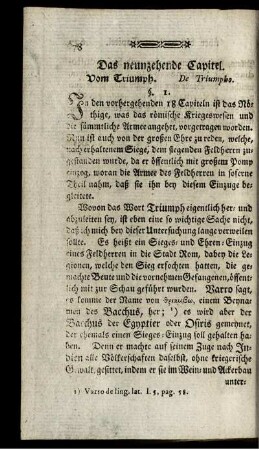 78
Das neunzehende Capitel.
Vom Triumph. De Triumpho.
§. 1.
In den vorhergehenden 18 Capiteln ist das Nö-
thige, was das römische Kriegeswesen und
die sämmtliche Armee angehet, vorgetragen worden.
Nun ist auch von der großen Ehre zu reden, welche,
nach erhaltenem Siege, dem siegenden Feldherrn zu-
gestanden wurde, da er öffentlich mit großem Pomp
einzog, woran die Armee des Feldherrn in soferne
Theil nahm, daß sie ihn bey diesem Einzuge be-
gleitete.
Wovon das Wort Triumph eigentlich her: und
abzuleiten sey, ist eben eine so wichtige Sache nicht,
daß ich mich bey dieser Untersuchung lange verweilen
sollte. Es heißt ein Sieges- und Ehren-Einzug
eines Feldherrn in die Stadt Rom, dabey die Le-
gionen, welche den Sieg erfochten hatten, die ge-
machte Beute und die vornehmen Gefangenen, öffent-
lich mit zur Schau geführt wurden. Varro sagt,
es komme der Name von θριαμβω, einem Beyna-
men des Bacchus, her; ¹) es wird aber der
Bacchus der Egyptier oder Osiris gemeynet,
der ehemals einen Sieges-Einzug soll gehalten ha-
ben. Denn er machte auf seinem Zuge nach In-
dien alle Völkerschaften daselbst, ohne kriegerische
Gewalt, gesittet, indem er sie im Wein- und Ackerbau
unter:
1) Varro de ling. lat. l. 5, pag. 58.